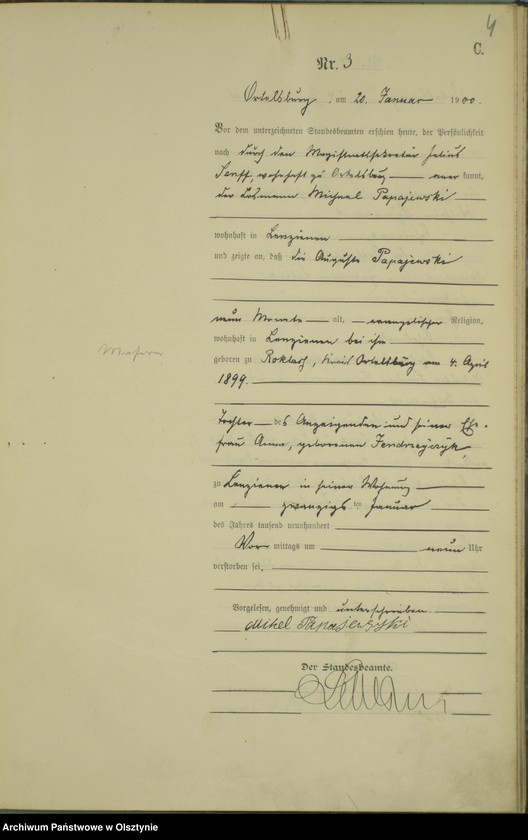 4
C.
Nr. 3
Ortelsburg, am 20. Januar 1900.
Vor dem unterzeichneten Standesbeamten erschien heute, der Persönlichkeit
nach durch den Magistratssekretär Julius
wohnhaft zu Ortelsburg anerkannt,
der Losmann Michael Papajewski
wohnhaft in Lenzienen
und zeigte an, daß die Auguste Papajewski
neun Monate alt, evangelischer Religion,
wohnhaft in Lenzienen bei ihm
geboren zu Kreis Ortelsburg am 4. April
1899.
Tochter des Anzeigenden und seiner Ehe-
frau Anna, geborenen Jendrzejczyk,
zu Lenzienen in seiner Wohnung
am zwanzigsten Januar
des Jahres tausend neunhundert
Vormittags um neun Uhr
verstorben sei.
Vorgelesen, genehmigt und unterschrieben
Mihel Papajewski
Der Standesbeamte.
Archiwum Państwowe w Olsztynie